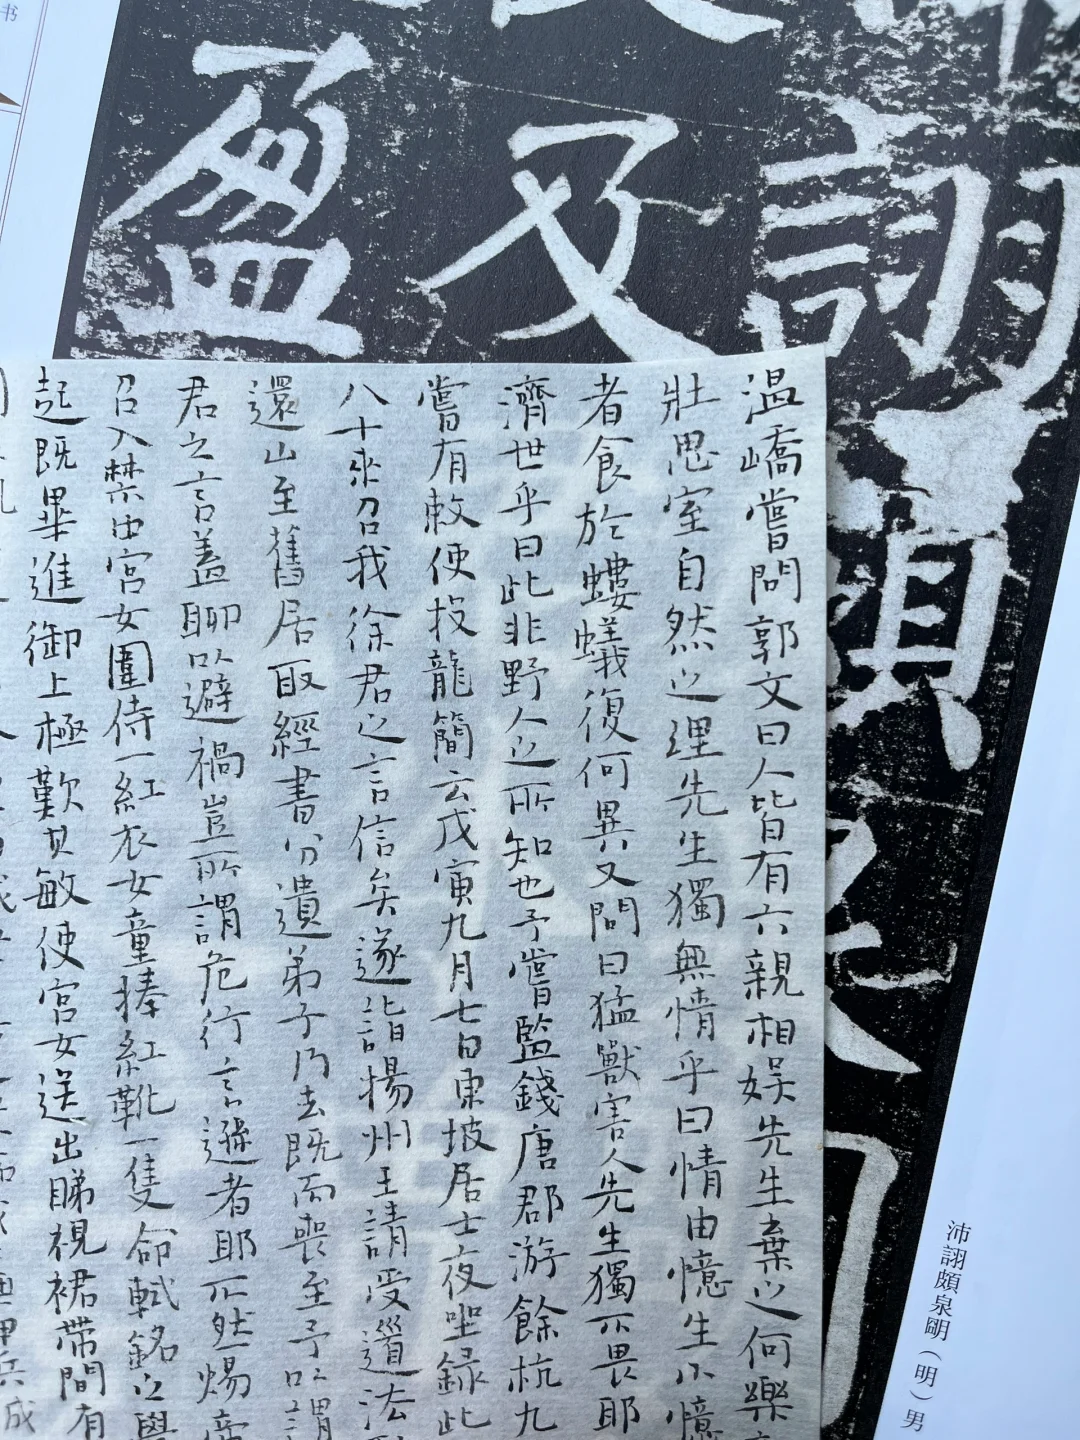 温嶠嘗問郭文曰人皆有六親相娱先生棄之何樂
壯思室自然之理先生獨無情乎曰情由憶生不憶
者食於螻蟻復何異又問曰猛獸害人先生獨不畏耶
濟世乎曰此非野人之所知也予嘗監錢唐郡游餘杭九
嘗有敕使投龍簡云戊寅九月七日東坡居士夜坐録此
八十來召我徐君之言信矣遂詣揚州王請受道法
還山至舊居取經書分遺弟子乃去既而喪至予以謂
君之言蓋聊以避禍豈所謂危行言遜者耶不然煬帝
召入禁中宮女圍侍一紅衣女童捧紅靴一隻命軾銘之
起既畢進御上極歎其敏使宮女送出睇視裙帶間有
翊
及
盈
沛詡頗泉朙（明）男
书